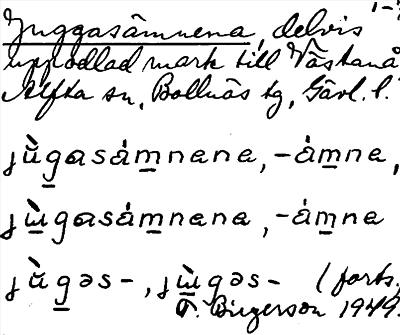 Juggasämnena, delvis
uppodlad mark till Västanå
Alfta sn, Bollnäs tg, Gävl. l.
jù̱gasám̱nena, -ám̱ne,
jẁ̱gasám̱nena, -ám̱ne
jù̱gəs-, jẁ̱gəs- (forts.
T. Birgerson 1949.